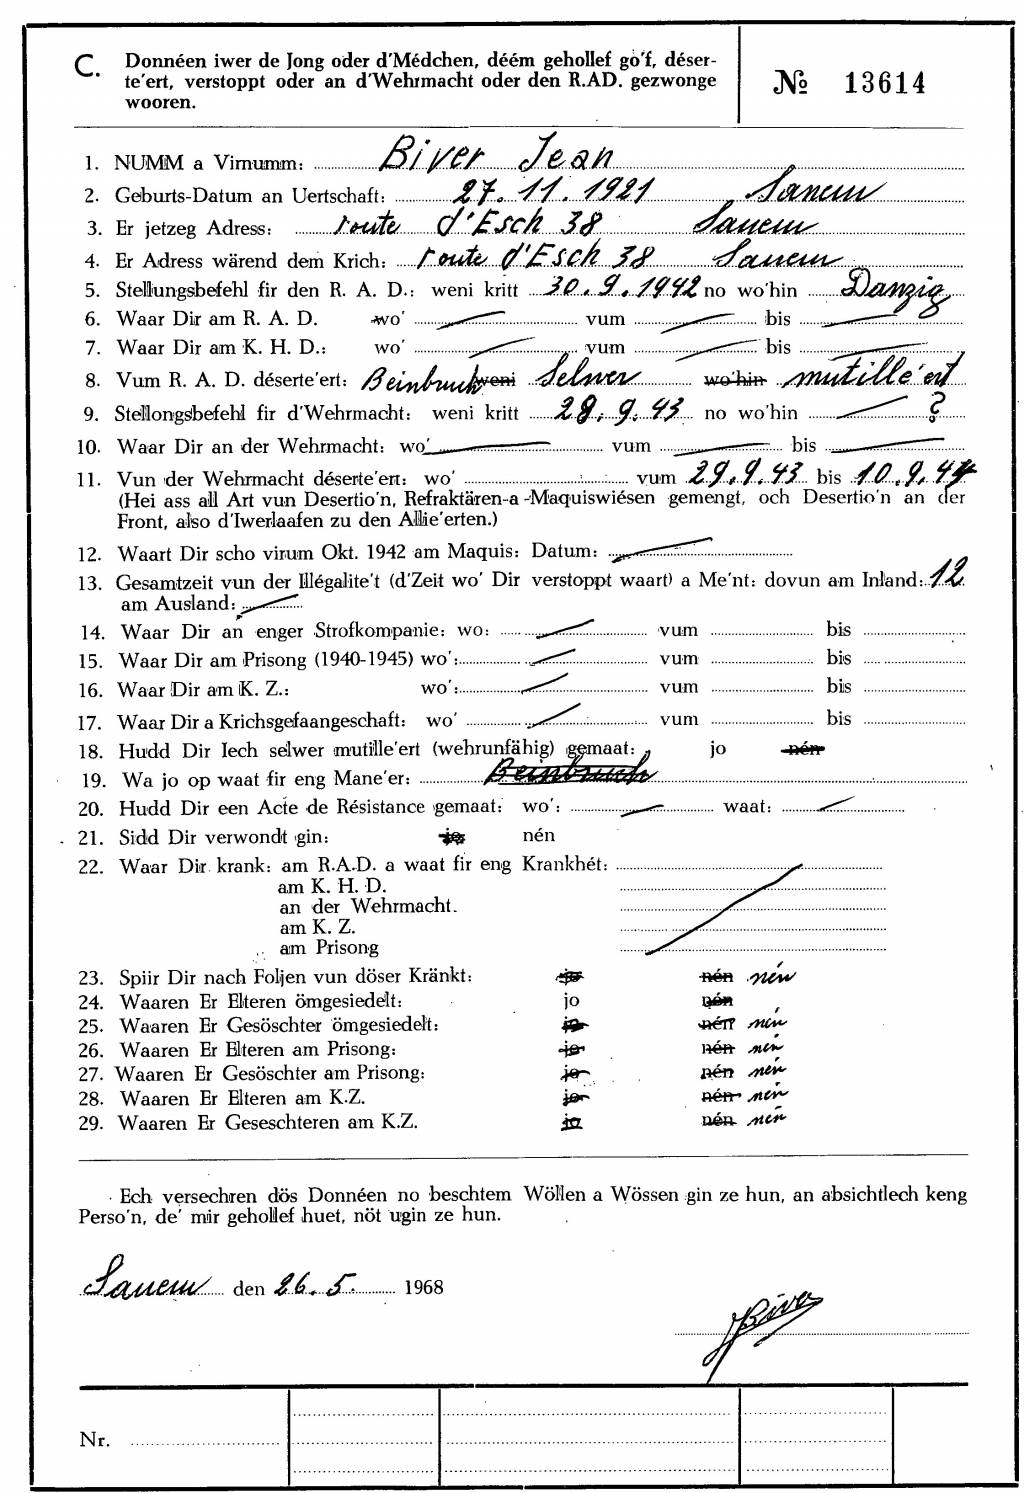 C. Donnéen iwer de Jong oder d'Médchen, déém gehollef go'f, déser-
te'ert, verstoppt oder an d'Wehrmacht oder den R.AD. gezwonge
wooren.
№ 13614
1. NUMM a Virnumm: Biver Jean
2. Geburts-Datum an Uertschaft: 27. 11. 1921 Sanem
3. Er jetzeg Adress: route d'Esch 38 Sanem
4. Er Adress wärend dem Krich: route d'Esch 38 Sanem
5. Stellungsbefehl fir den R. A. D.: weni kritt 30.9.1942 no wo'hin Danzig
6. Waar Dir am R. A. D. wo' vum bis
7. Waar Dir am K. H. D.: wo' vum bis
8. Vum R. A. D. déserte'ert: Beinbruch weni Selwer wo'hin mutille'ert
9. Stellongsbefehl fir d'Wehrmacht: weni kritt 28. 9. 43 no wo'hin ?
10. Waar Dir an der Wehrmacht: wo' vum bis
11. Vun der Wehrmacht déserte'ert: wo' vum 29.9.43 bis 10.9.44
(Hei ass all Art vun Desertio'n, Refraktären-a-Maquiswiésen gemengt, och Desertio'n an der
Front, also d'Iwerlaafen zu den Allie'erten.)
12. Waart Dir scho virum Okt. 1942 am Maquis: Datum:
13. Gesamtzeit vun der Illégalite't (d'Zeit wo' Dir verstoppt waart) a Me'nt: dovun am Inland: 12
am Ausland:
14. Waar Dir an enger Strofkompanie: wo: vum bis
15. Waar Dir am Prisong (1940-1945) wo': vum bis
16. Waar Dir am K. Z.: wo': vum bis
17. Waar Dir a Krichsgefaangeschaft: wo' vum bis
18. Hudd Dir Iech selwer mutille'ert (wehrunfähig) gemaat: jo nén
19. Wa jo op waat fir eng Mane'er: Beinbruch
20. Hudd Dir een Acte de Résistance gemaat: wo': waat:
21. Sidd Dir verwondt gin: jo nén
22. Waar Dir krank: am R.A.D. a waat fir eng Krankhét:
am K. H. D.
an der Wehrmacht.
am K. Z.
am Prisong
23. Spiir Dir nach Foljen vun döser Kränkt: jo nén nén
24. Waaren Er Elteren ömgesiedelt: jo nén
25. Waaren Er Gesöschter ömgesiedelt: jo nén nén
26. Waaren Er Elteren am Prisong: jo nén nén
27. Waaren Er Gesöschter am Prisong: jo nén nén
28. Waaren Er Elteren am K.Z. jo nén nén
29. Waaren Er Geseschteren am K.Z. jo nén nén
Ech versechren dös Donnéen no beschtem Wöllen a Wössen gin ze hun, an absichtlech keng
Perso'n, de' mir gehollef huet, nöt ugin ze hun.
Sanem den 26. 5. 1968
JBiver
Nr.